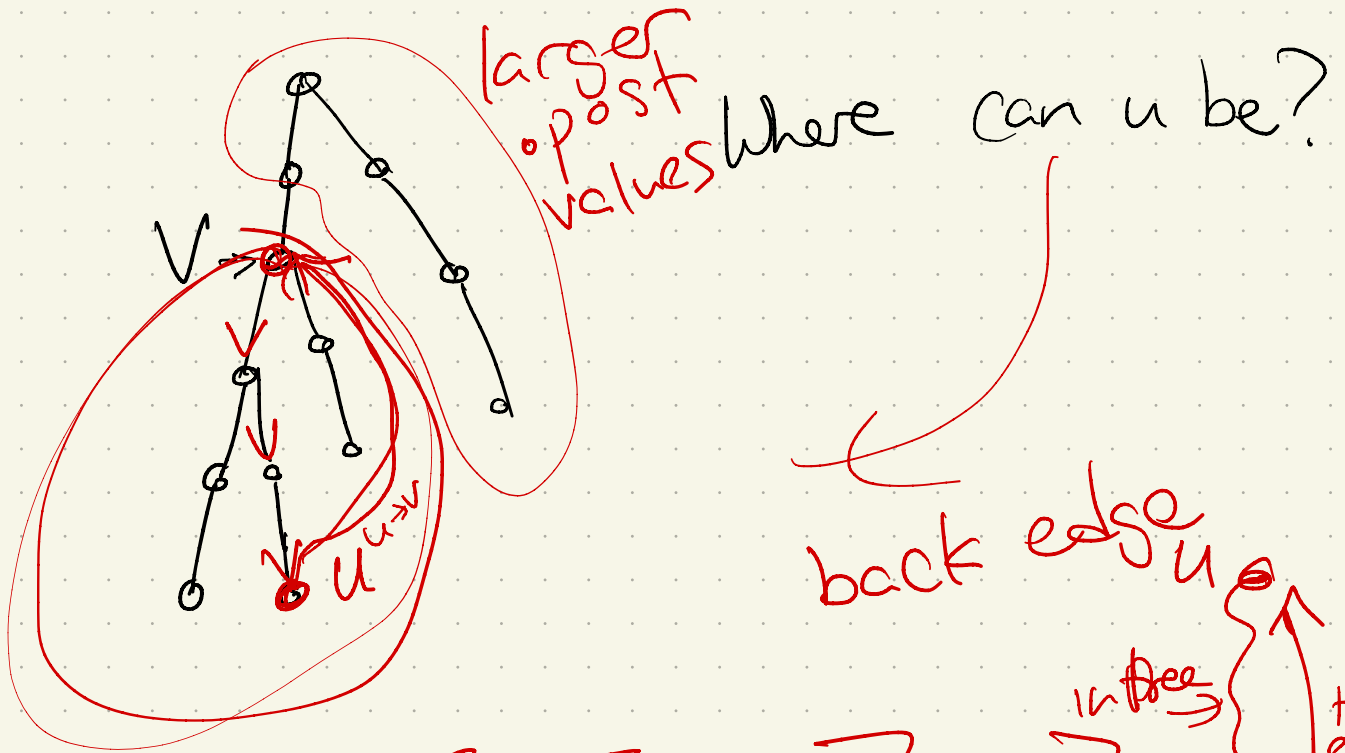 larger
post
values
Where can u be?
V
u
u → v
back edge
u
in tree